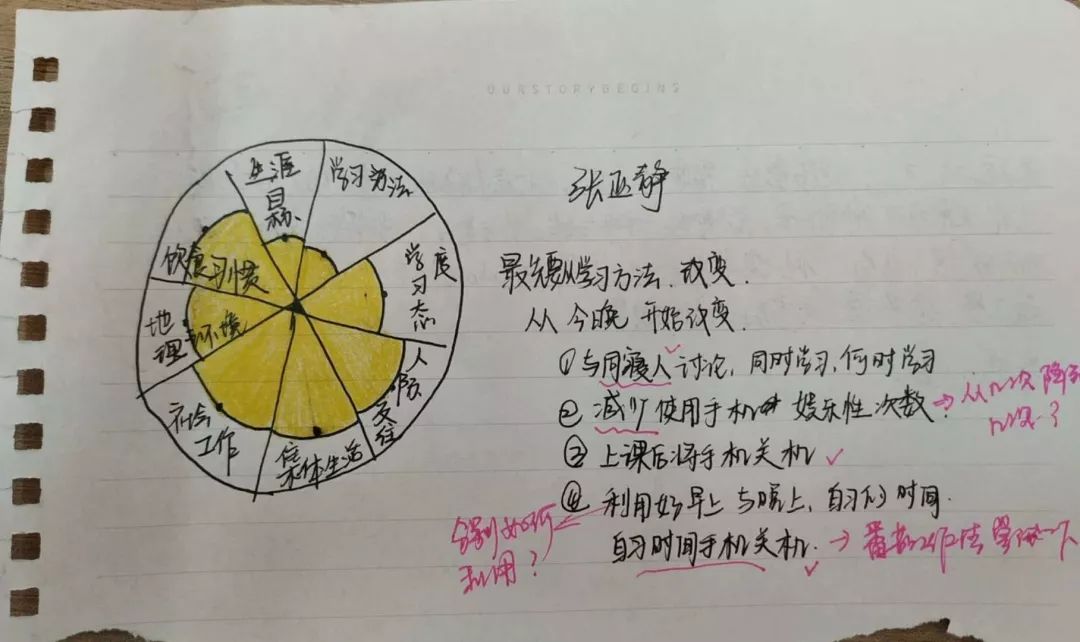 OURSTORYBEGINS
生涯目标
学习方法
学习态度
人际交往
集体生活
社会工作
地理环境
饮食习惯
张亚静
最先要从学习方法.改变.
从 今晚 开始改变.
①与同寝人讨论,同时学习,何时学习
② 减少使用手机 娱乐性次数.
→从几次降到几次?
③ 上课后将手机关机 ✓
④ 利用好早上与晚上,自习的时间.
分别如何利用?
自习时间手机关机. → 番茄工作法 学习一下